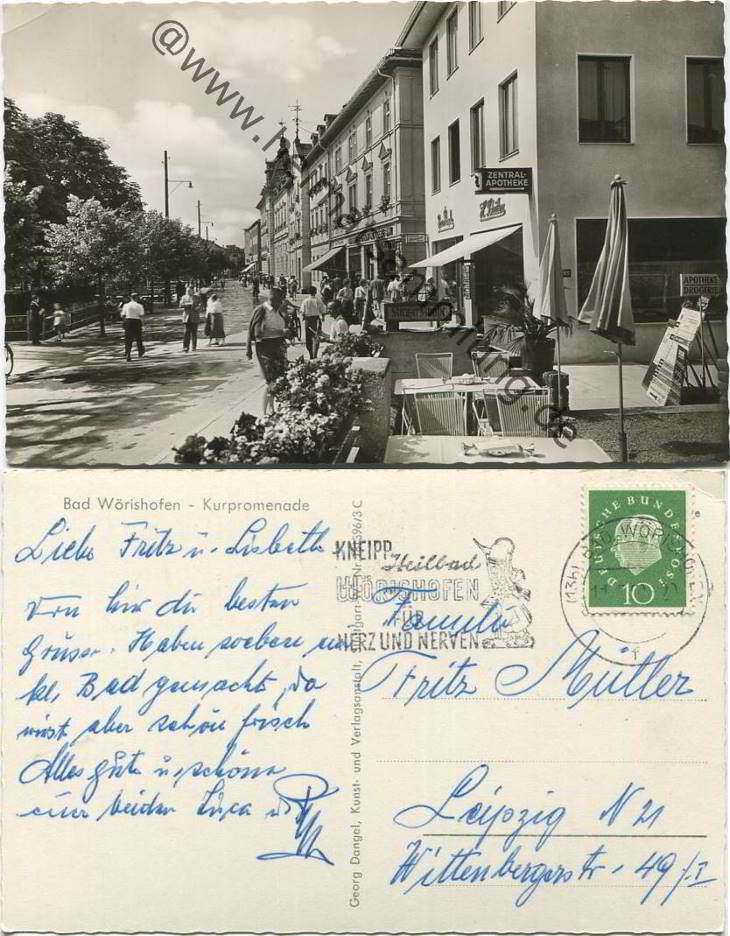 @www.
.de
ZENTRAL-
APOTHEKE
APOTHEKE
DROGERIE
Bad Wörishofen - Kurpromenade
Liebe Fritz u. Lisbeth
Von hier die besten
Grüsse. Haben soeben
Bad gemacht, da
wirst aber schön frisch
Alles gute u. schöne
euer beiden Luca u.
Georg Dangel, Kunst- und Verlagsanstalt, Stuttgart
KNEIPP
Heilbad
WÖRISHOFEN
FÜR
HERZ UND NERVEN
Familie
DEUTSCHE BUNDESPOST
10
BAD WÖRISHOFEN
Fritz Müller
Leipzig N 21
Wittenbergerstr. 49/I